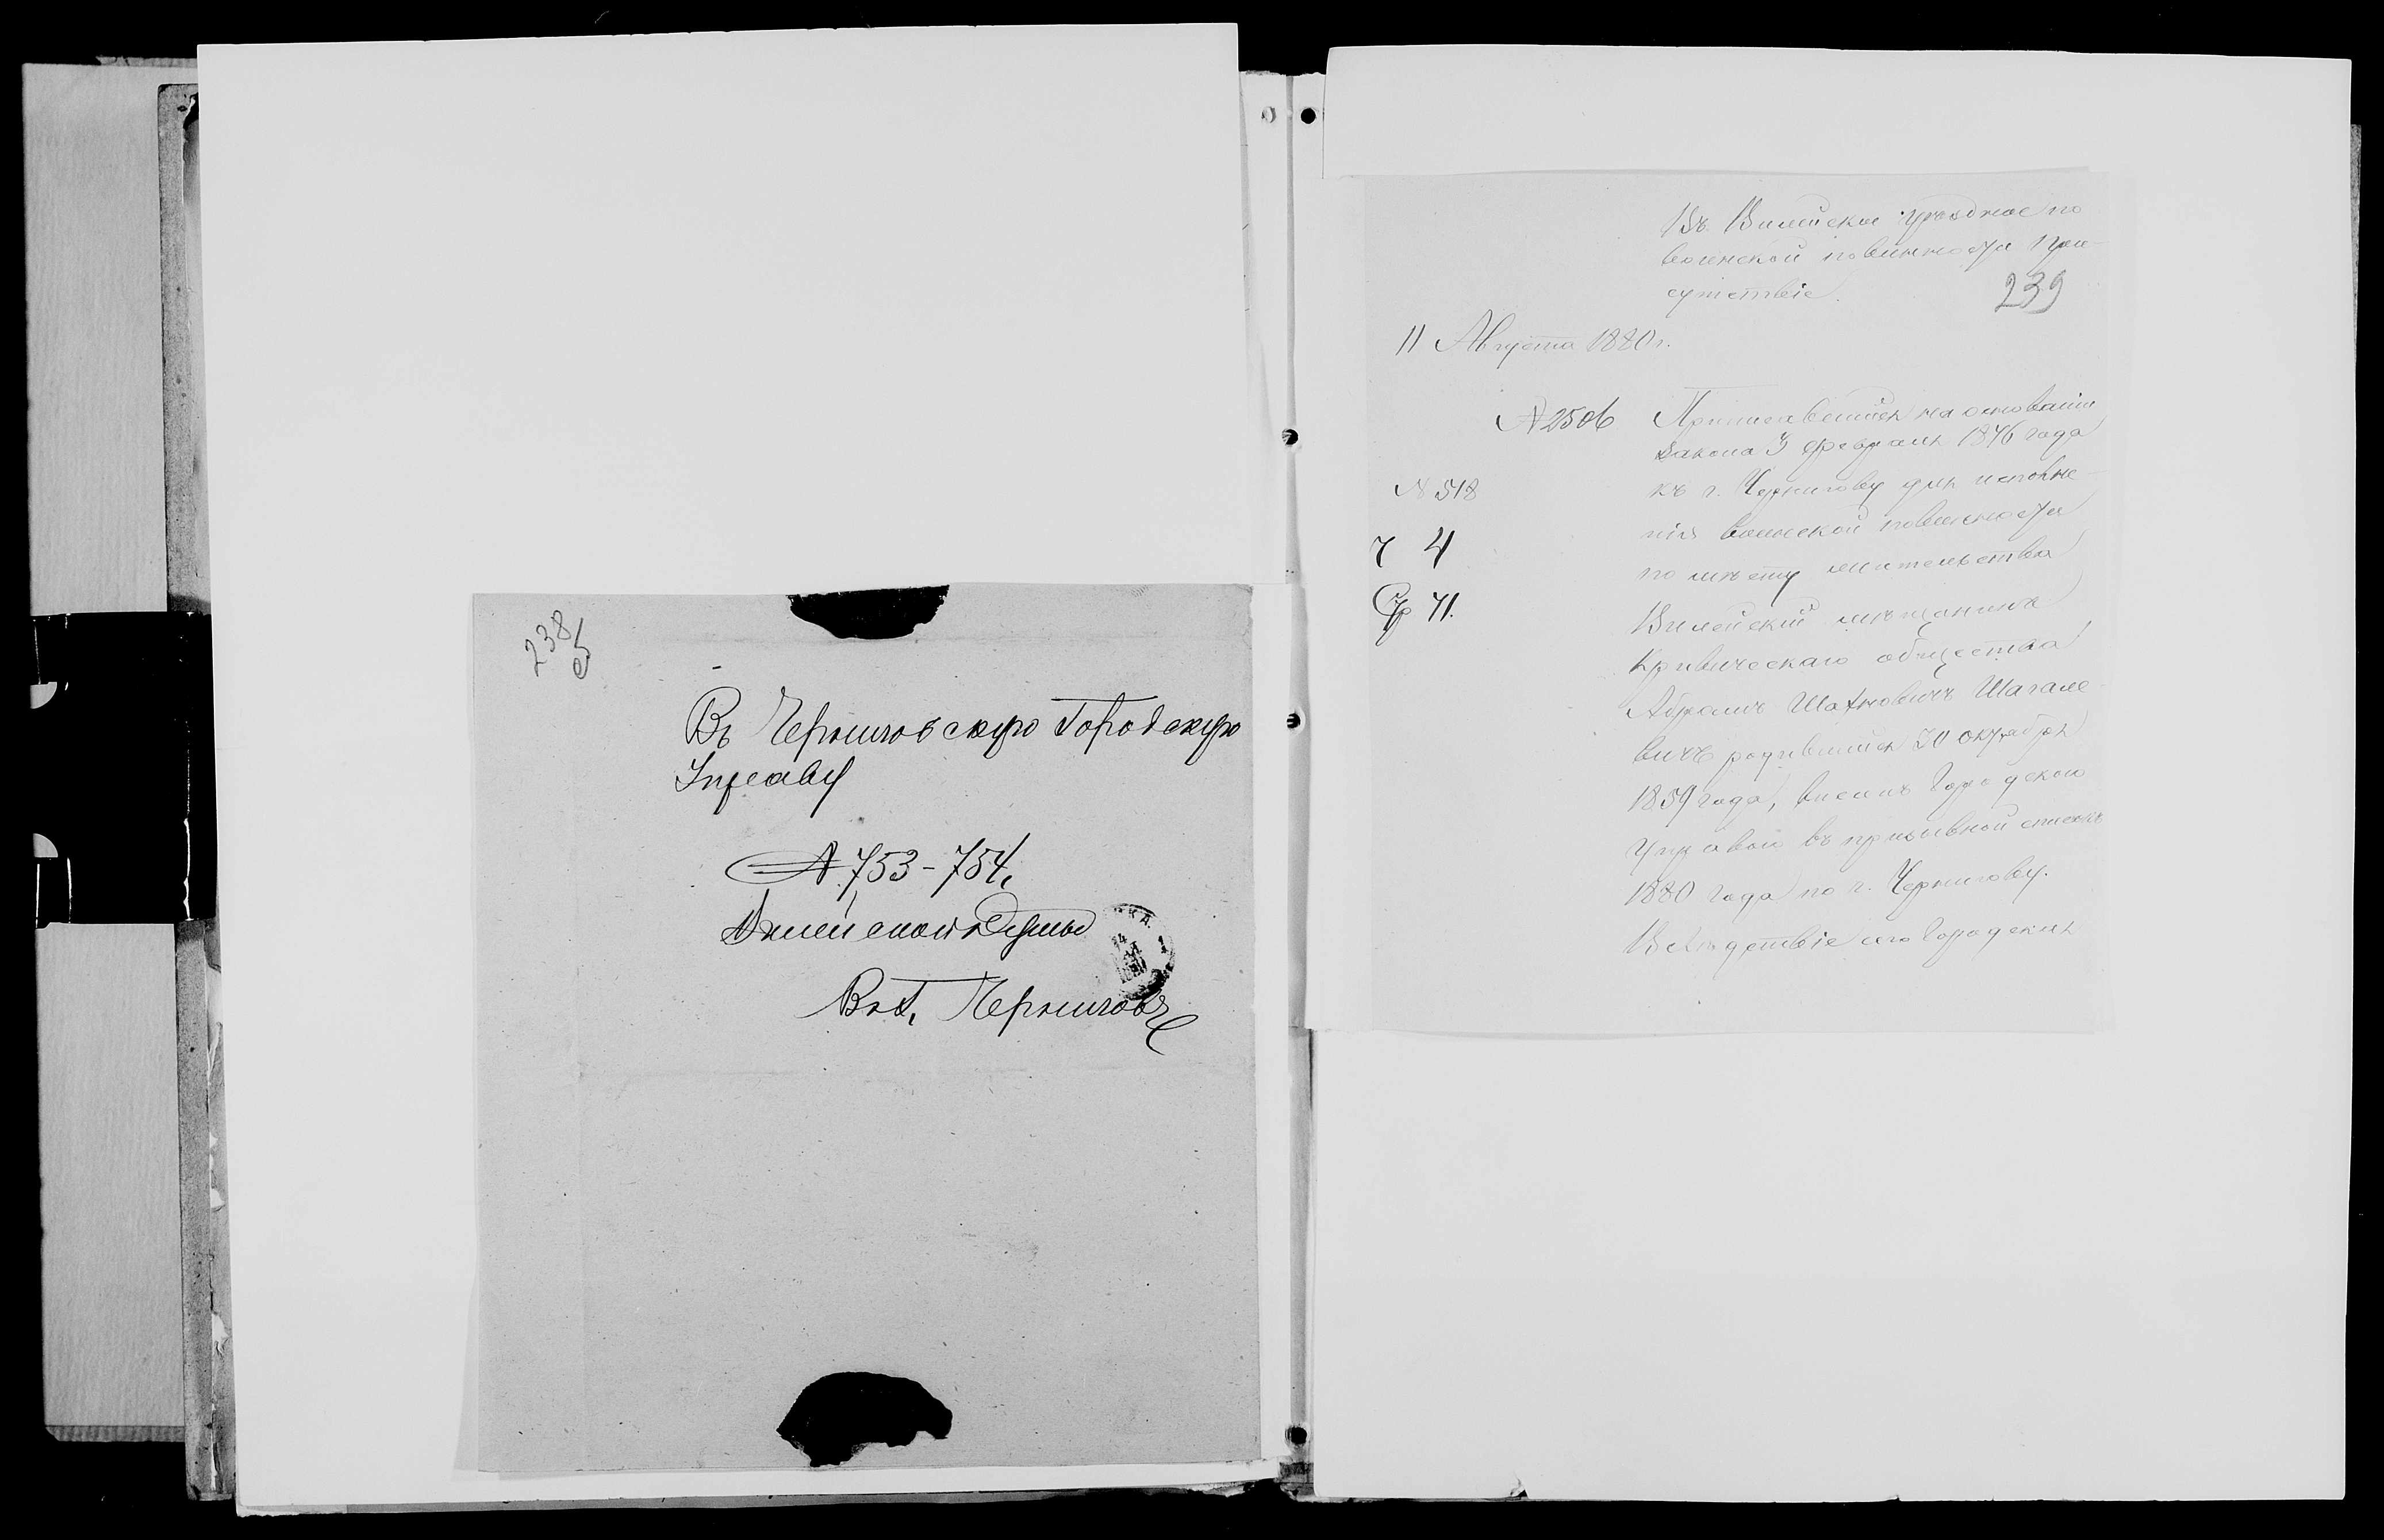 238
об
Въ Черниговскую Городскую
Управу
№ 753-754,
Вилейской Думы
Въ г. Черниговъ
Въ Вилейское уѣздное по
воинской повинности при-
сутствіе.
239
11 Августа 1880 г.
№ 2506
Приписавшійся на основаніи
закона 3 февраля 1876 года
№ 518
къ г. Чернигову для исполне-
нія воинской повинности
4
по мѣсту жительства
71.
Вилейскій мѣщанинъ
Кривическаго общества
Абрамъ Шахновичъ Шагале-
вичъ родившійся 30 октября
1859 года, внесенъ Городскою
Управою въ призывной списокъ
1880 года по г. Чернигову.
Вслѣдствіе сего Городская